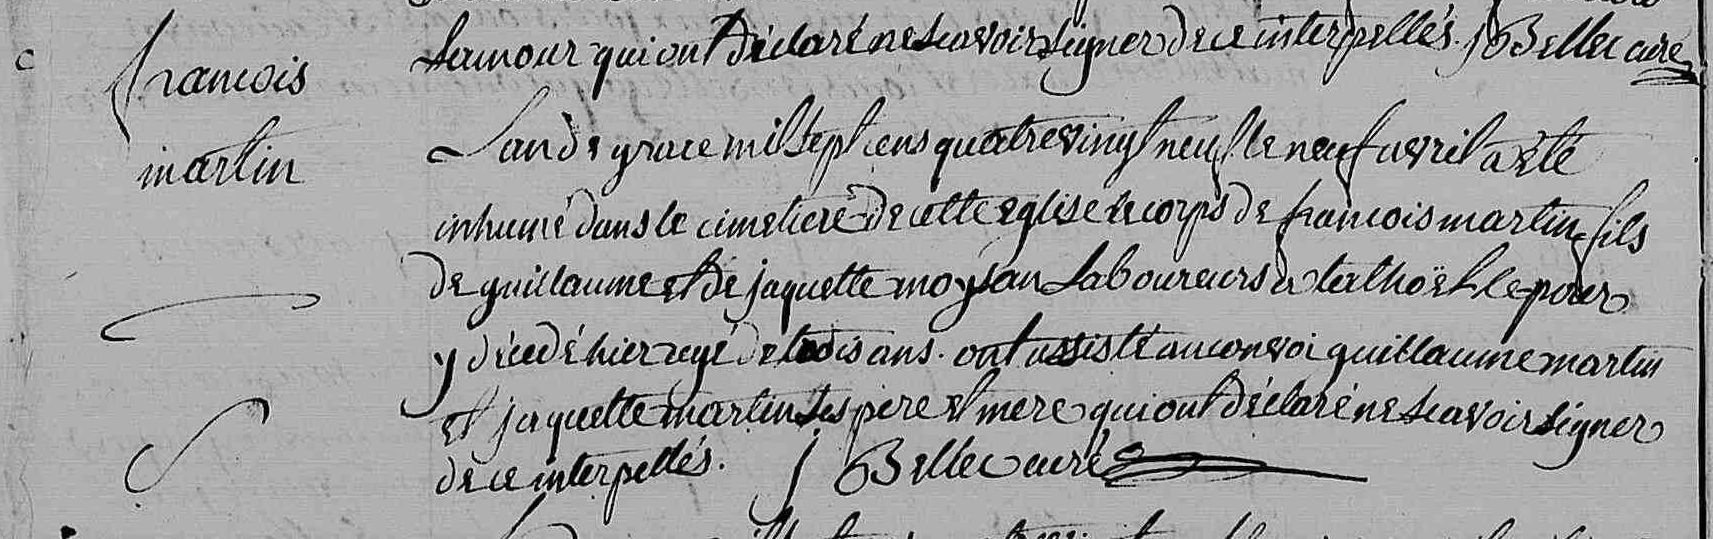 Lamour qui ont déclaré ne scavoir signer de ce interpellés. J Bellec curé
francois
martin
L'an de grace mil sept cens quatre vingt neuf le neuf avril a été
inhumé dans le cimetiere de cette eglise le corps de francois martin fils
de guillaume et de jaquette moysan Laboureurs a talhoët le
y décédé hier agé de trois ans. ont assisté au convoi guillaume martin
et jaquette martin ses pere et mere qui ont déclaré ne scavoir signer
de ce interpellés. J Bellec curé